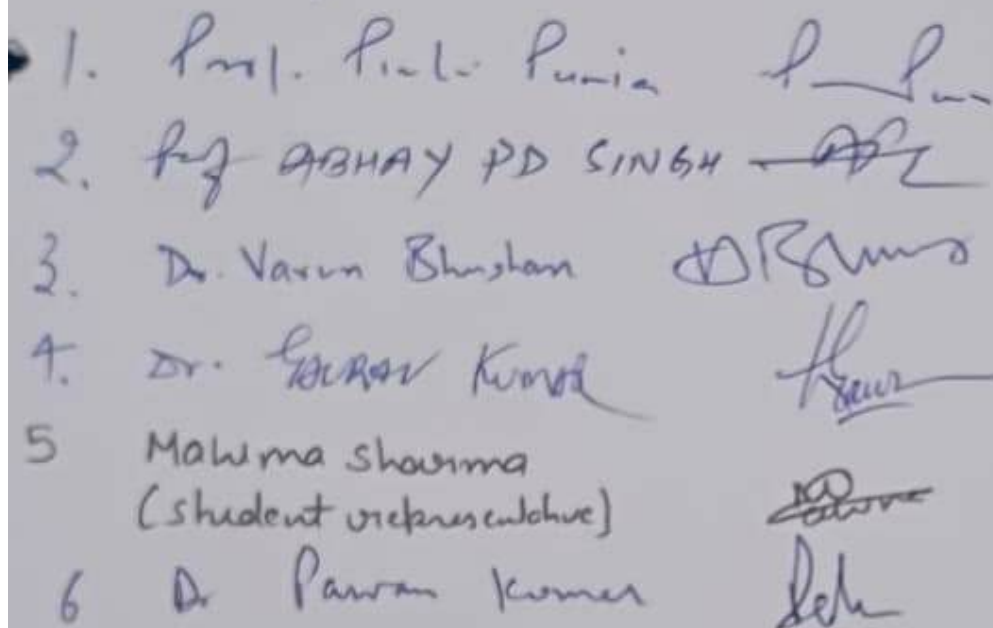 1. Prof. Punia
2. Prof ABHAY PD SINGH
3. Dr. Varun Bhushan
4. Dr. GAURAV Kumar
5 Mahima sharma
(student representative)
6 Dr Pawan Kumar